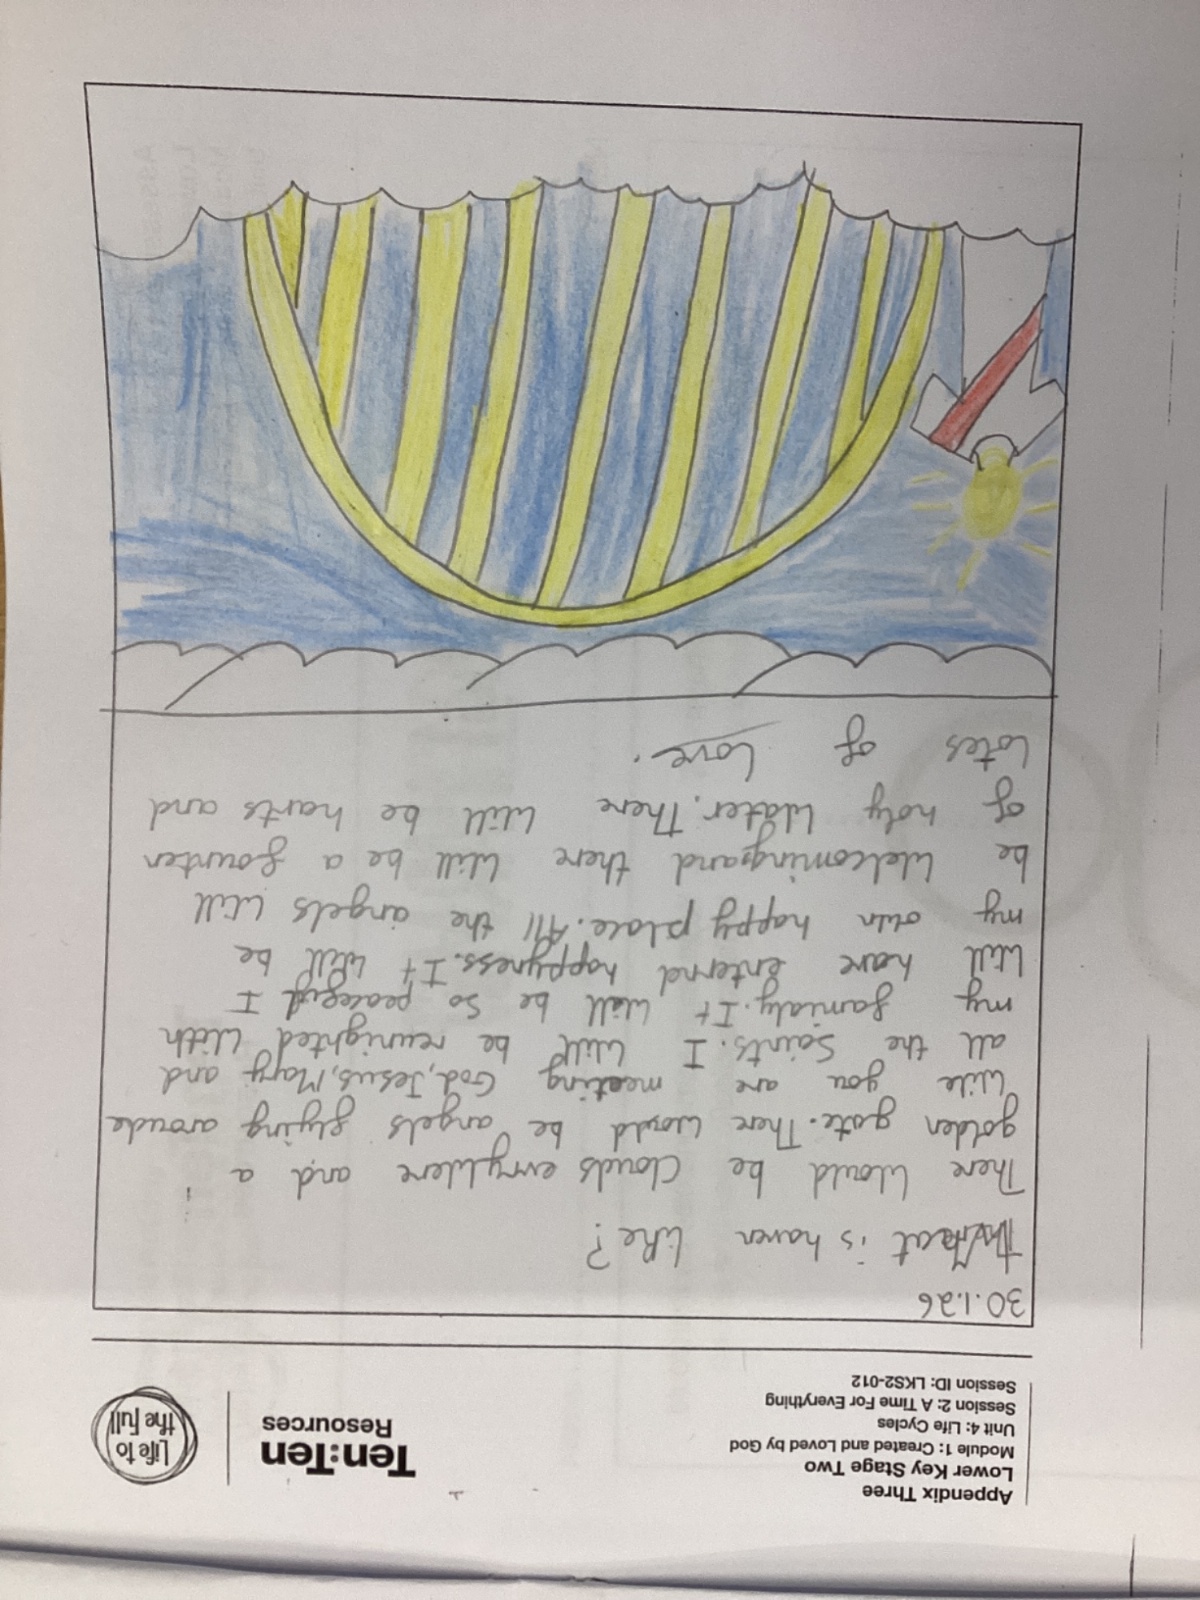 Appendix Three
Lower Key Stage Two
Module 1: Created and Loved by God
Unit 4: Life Cycles
Session 2: A Time For Everything
Session ID: LKS2-012
Ten:Ten
Resources
Life to
the full
30.1.26
What is haven like?
There would be clouds evrywere and a
golden gate. There would be angels flying aroude
wile you are meeting God, Jesus, Mary and
all the Saints. I will be reunighted with
my famialy. It will be so peacefyl I
will have enternd happyness. It will be
my own happy place. All the angels will
be welcomingand there will be a founten
of holy water. There will be harts and
lotes of love.